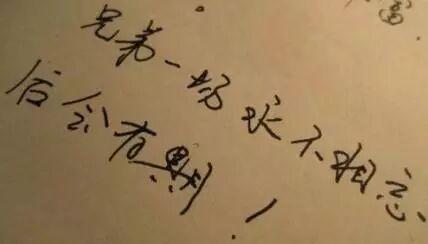 兄弟一场永不相忘
后会有期!